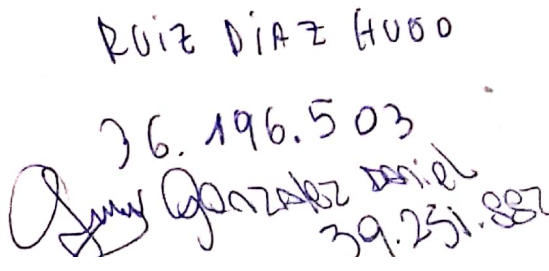 RUIZ DIAZ HUGO
36.196.503
Gonzalez Daniel
39.251.882